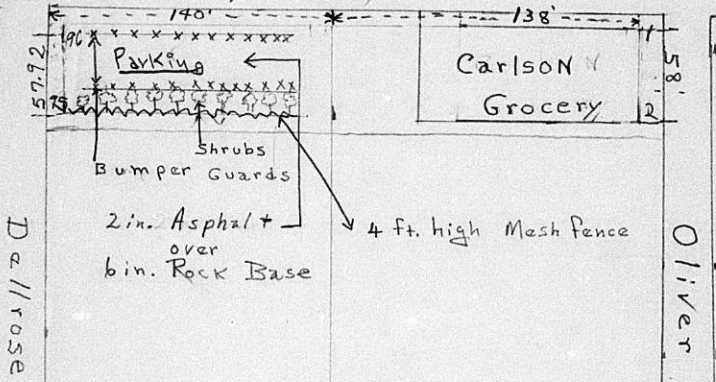 140'
138'
96
Parking
57.92
75
Carlson
Grocery
1
2
58'
Shrubs
Bumper Guards
2 in. Asphalt
over
6 in. Rock Base
4 ft. high Mesh fence
Dellrose
Oliver